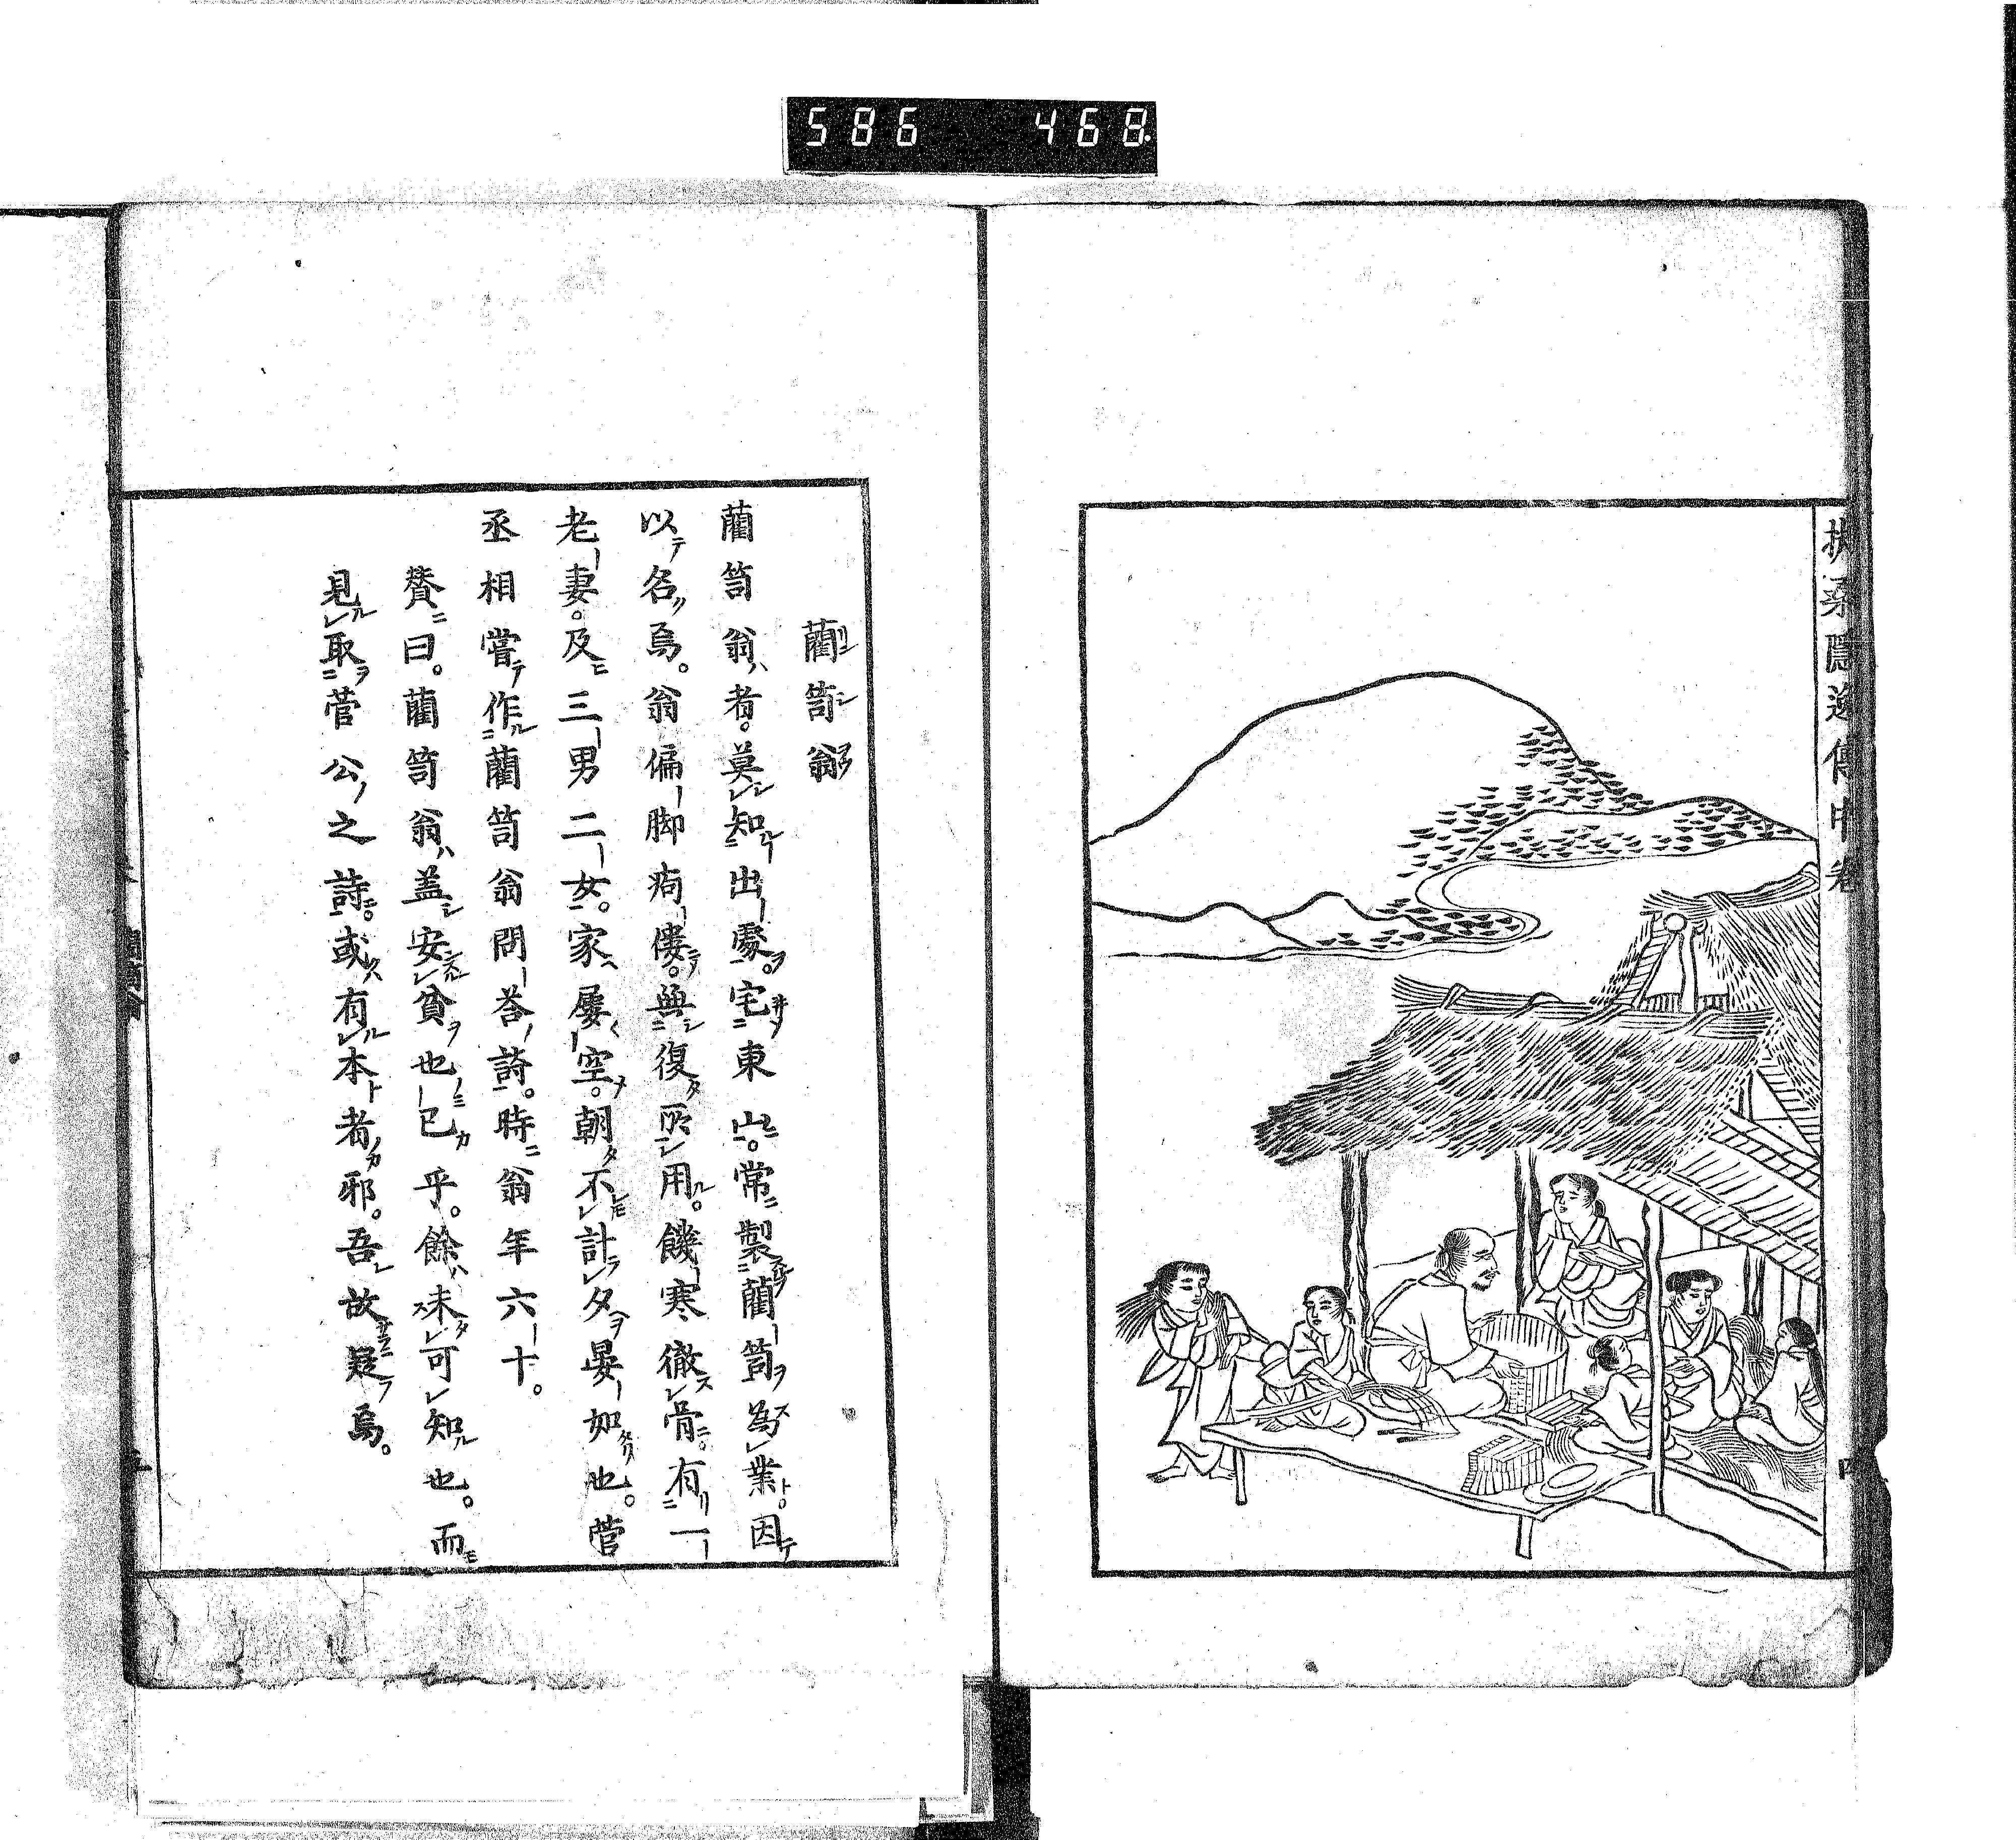 586 468
扶桑隠逸傳中巻
四
藺笥翁
藺笥翁者。莫知出處。宅東山。常製藺笥為業。因
以名焉。翁偏脚痀僂。無復所用。饑寒徹骨。有一
老妻。及三男二女。家屡空。朝不計夕。晏如也。菅
丞相嘗作藺笥翁問荅詩。時翁年六十。
賛曰。藺笥翁盖安貧也已乎。餘未可知也。而
見取菅公之詩。或有本者邪。吾故疑焉。